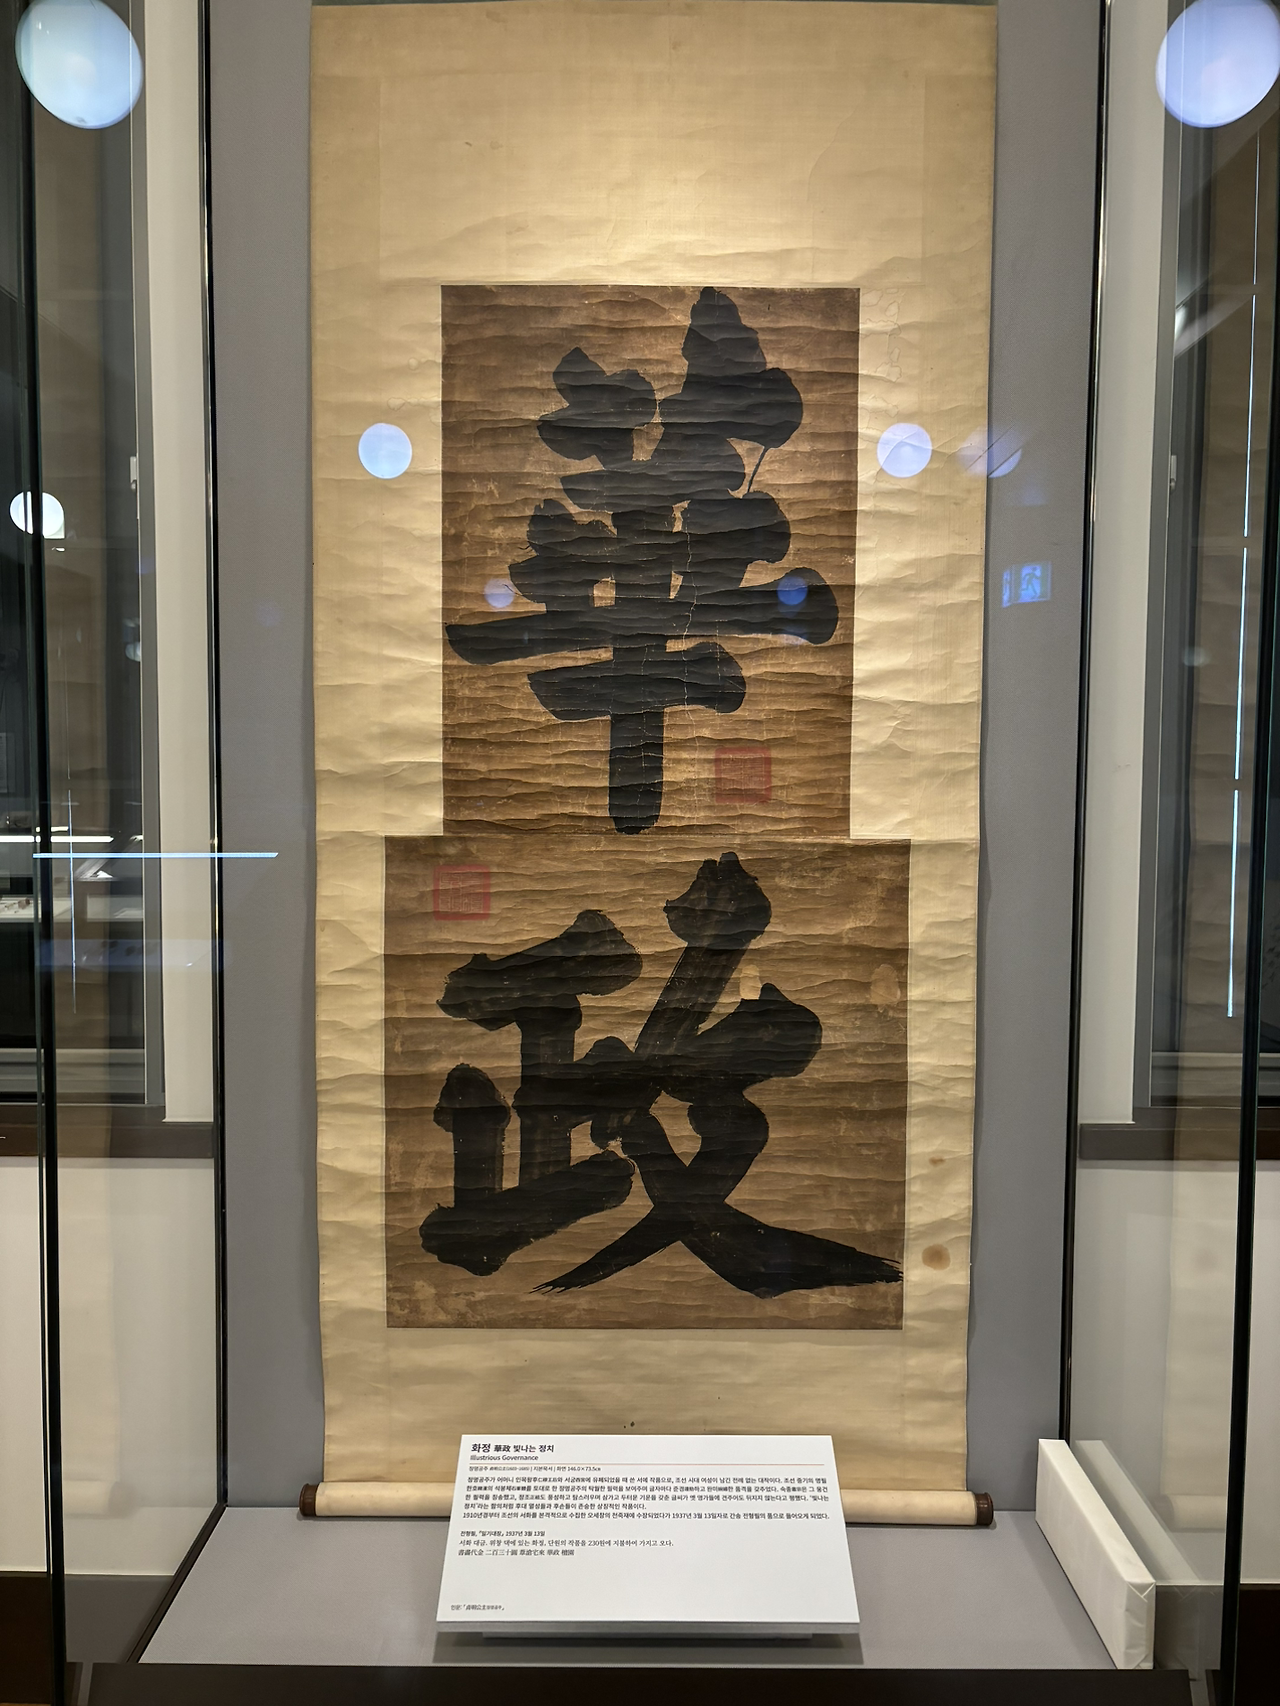 華
政
화정 華政 빛나는 정치
Illustrious Governance
정명공주 | 지본묵서 | 화면 146.0×73.5cm
정명공주가 어머니 인목왕후仁穆王后와 서궁西宮에 유폐되었을 때 쓴 서예 작품으로, 조선 시대 여성이 남긴 전례 없는 대작이다. 조선 중기의 명필
한호韓濩의 석봉체石峯體를 토대로 한 정명공주의 탁월한 필력을 보여주며 글자마다 준경하고 완미한 품격을 갖추었다. 숙종肅宗은 그 웅건
한 필력을 칭송했고, 정조正祖도 풍성하고 탐스러우며 삼가고 두터운 기운을 갖춘 글씨가 옛 명가들에 견주어도 뒤지지 않는다고 평했다. '빛나는
정치'라는 함의처럼 후대 열성들과 후손들이 존숭한 상징적인 작품이다.
1910년경부터 조선의 서화를 본격적으로 수집한 오세창의 천죽재에 수장되었다가 1937년 3월 13일자로 간송 전형필의 품으로 들어오게 되었다.
전형필, 「일기대장」 1937년 3월 13일
서화 대금. 위창 댁에 있는 화정, 단원의 작품을 230원에 지불하여 가지고 오다.
書畵代金 二百三十圓 葦滄宅來 華政 檀園